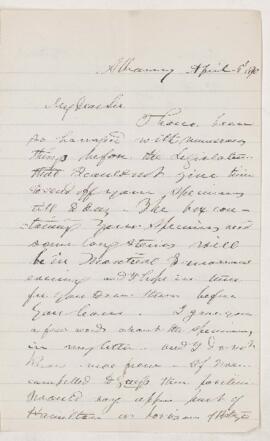 Albany April 8th
My Dear Sir
I have been
so harrassed with numerous
things before the Legislature
that I could not give time
to send off your specimens
till to day - The box con-
-taining your specimens and
some long stems will
be in Montreal tomorrow
evening and I hope in time
for you to see them before
you leave I gave you
a few words about the specimens
in my letter and I do not
know more now - If I am
compelled to them
would say upper part of
Hamilton or horizon of